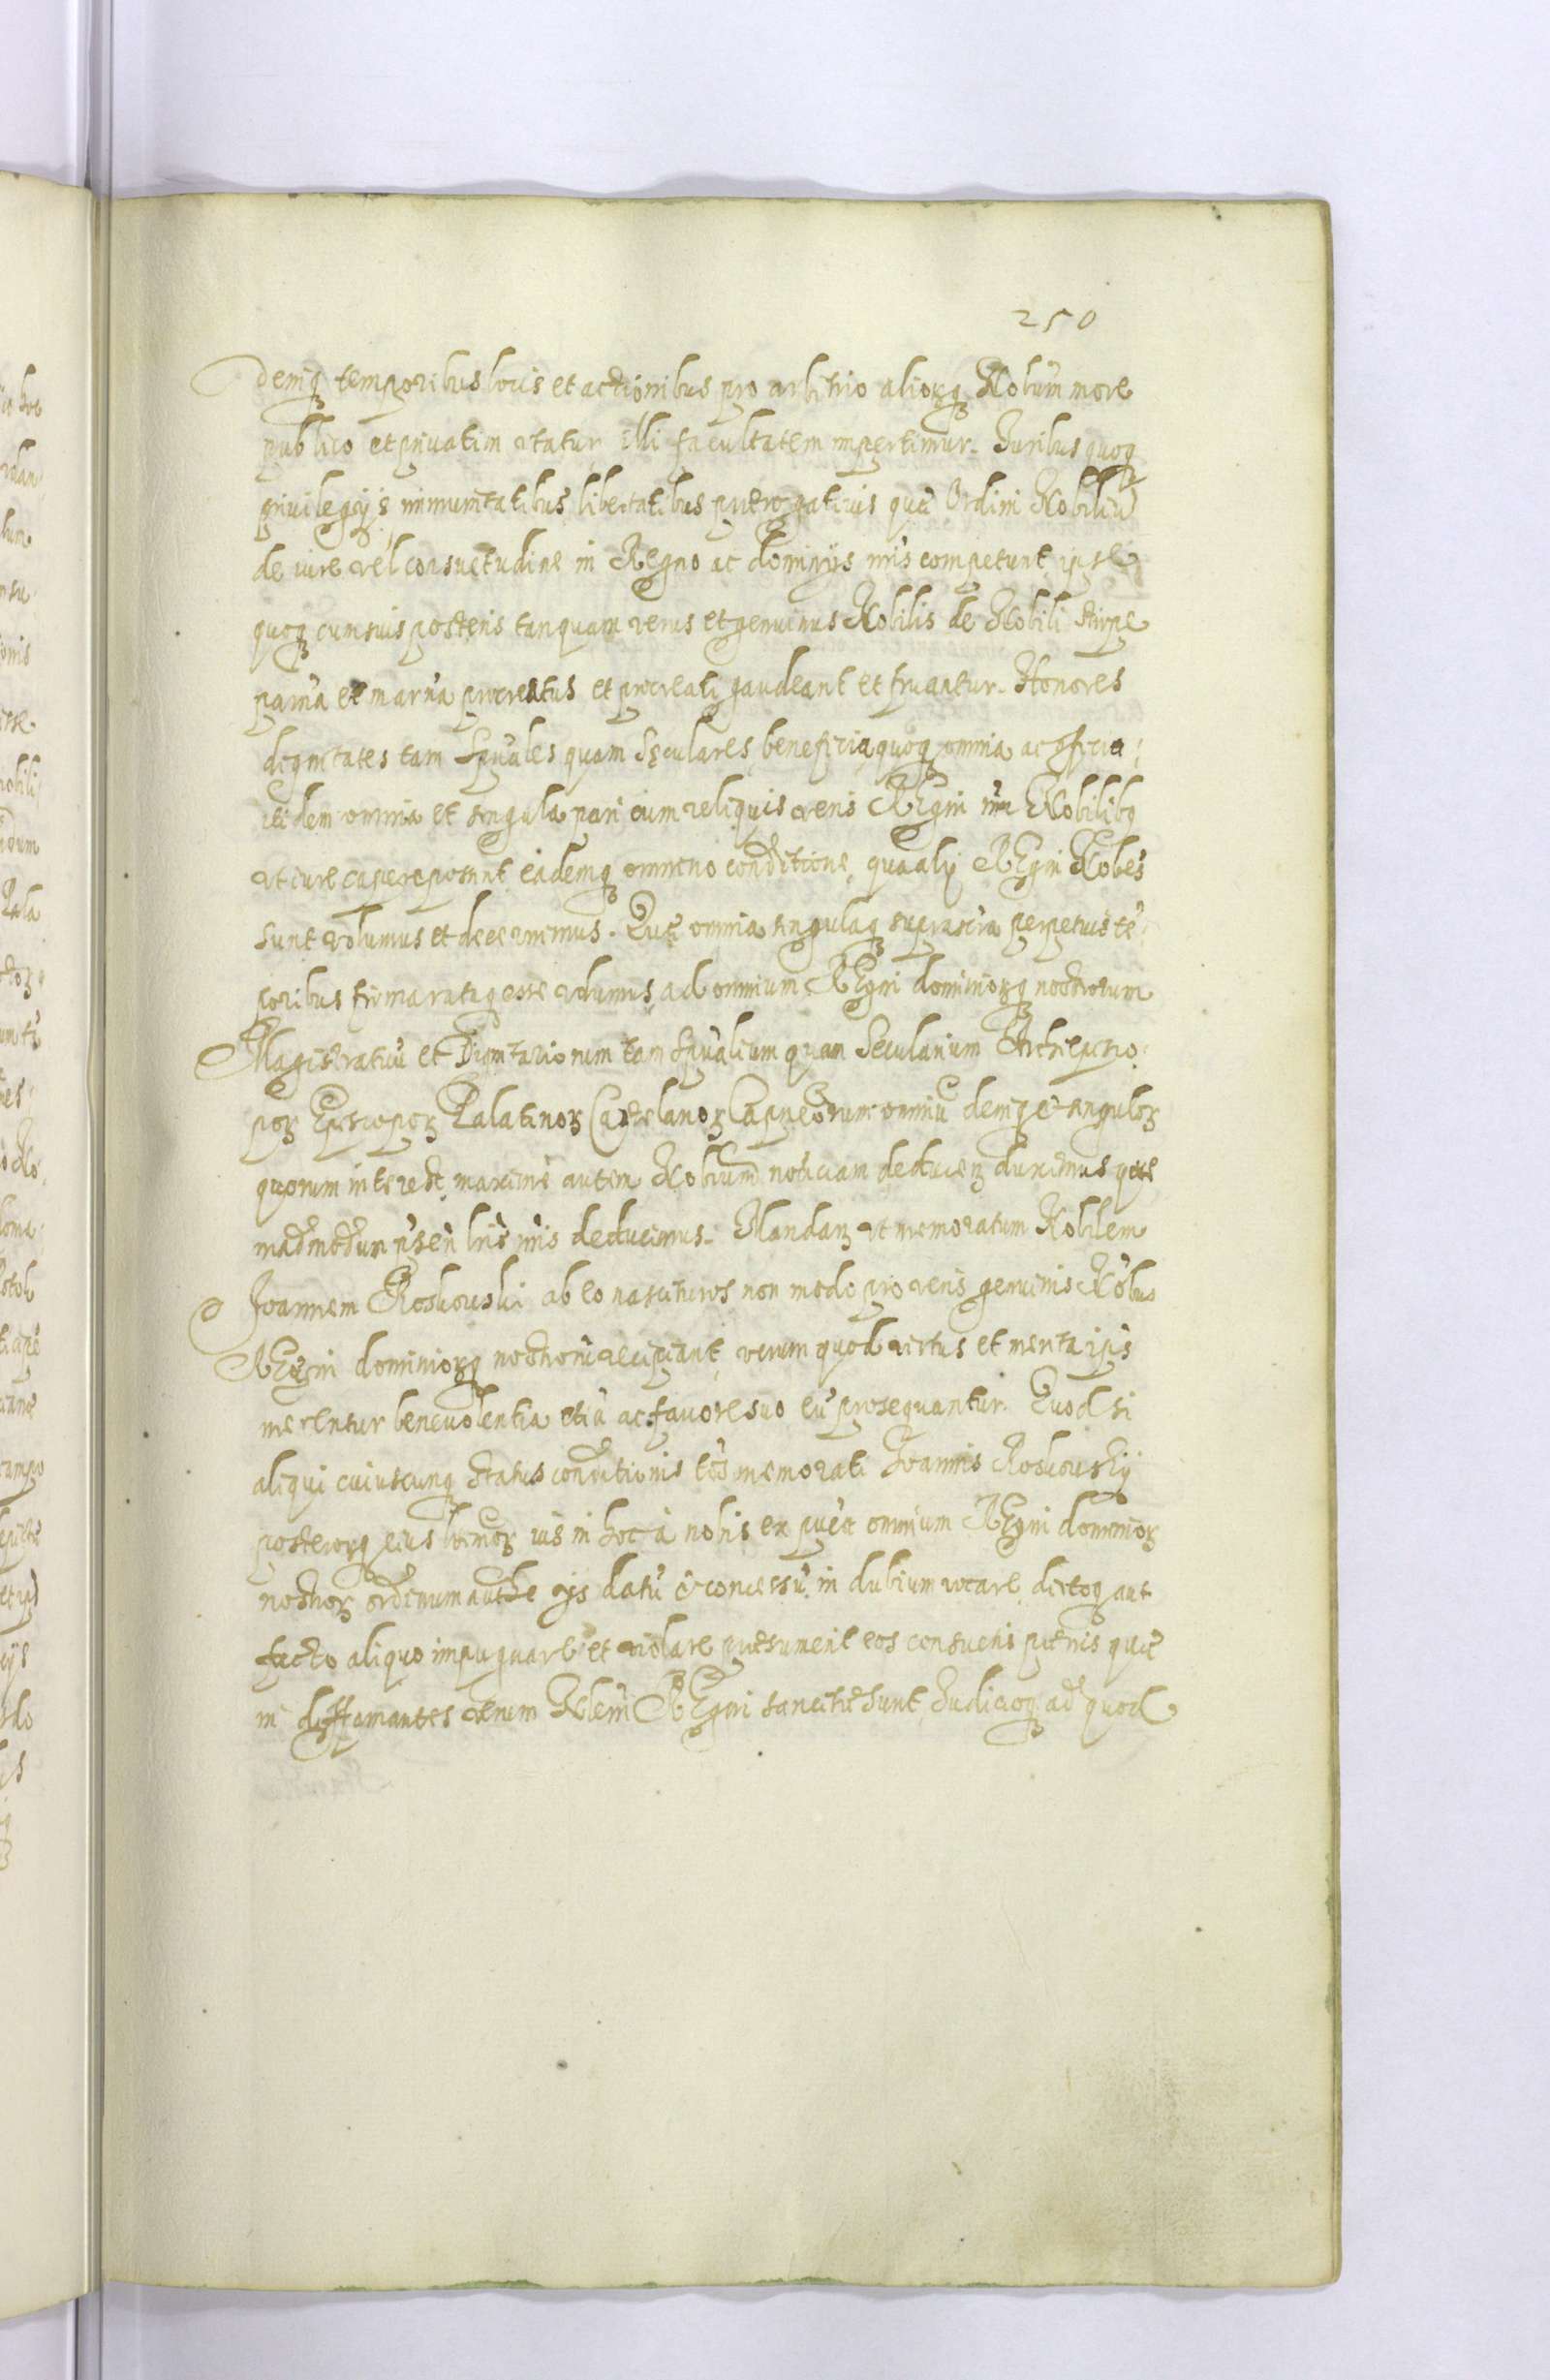 250
deniq temporibus locis et actionibus pro arbitrio aliorq Nobiūm more
publico et privatim utatur illi facultatem impertimur. Juribus quoq
privilegijs immunitatibus libertatibus prærogativis quæ Ordini Nobiliū
de iure vel consuetudine in Regno ac dominijs nr̄is competunt ipse
quoq cum suis posteris tanquam verus et genuinus Nobilis de Nobili stirpe
pat̄na et mat̄na procreatus et procreati gaudeant et fruantur. Honores
dignitates tam Spūales quam Sęculares, beneficia quoq omnia ac officia
itidem omnia et singula pari cum reliquis veris REgni nr̄i Nobilibq
ut iure capere possint eademq omnino conditione, qua alij REgni Nobes
sunt volumus et decernimus. Quæ omnia singulaq suprascr̄a perpetuis tē
poribus firma rataq esse volumus, ad omnium REgni dominiorq nostrorum
Magistratuū et Dignitariorum tam Spūalium quam Secularium Archiepisco
poꝝ Episcopoꝝ Palatinoꝝ Castelanoꝝ Capneorum omniū deniq et singuloꝝ
quorum interest, maxime autem Nobiūm noticiam deducenꝫ duximus que
madmodum p̄sen lr̄is nr̄is deducimus. Mandanꝫ ut memoratum Nobilem
Joannem Roskowski ab eo nascituros non modo pro veris genuinis Nobus
REgni dominiorq nostrorū recipiant, verum quod virtus et merita ipis
merentur benevolentia etiā ac favore suo eū prosequantur. Quod si
aliqui cuiuscunq status conditionis tōs memorati Joannis Roskowskij
posterorq eius ius in hoc à nobis ex omnium REgni dominioꝝ
nostroꝝ ordinum authe ijs datū et concessū in dubium vocare, dictoq aut
facto aliquo impugnare et violare præsumerit eos consuetis pœnis quæ
in diffamantes verum Nblem REgni sancitæ sunt, Judicioq ad quod